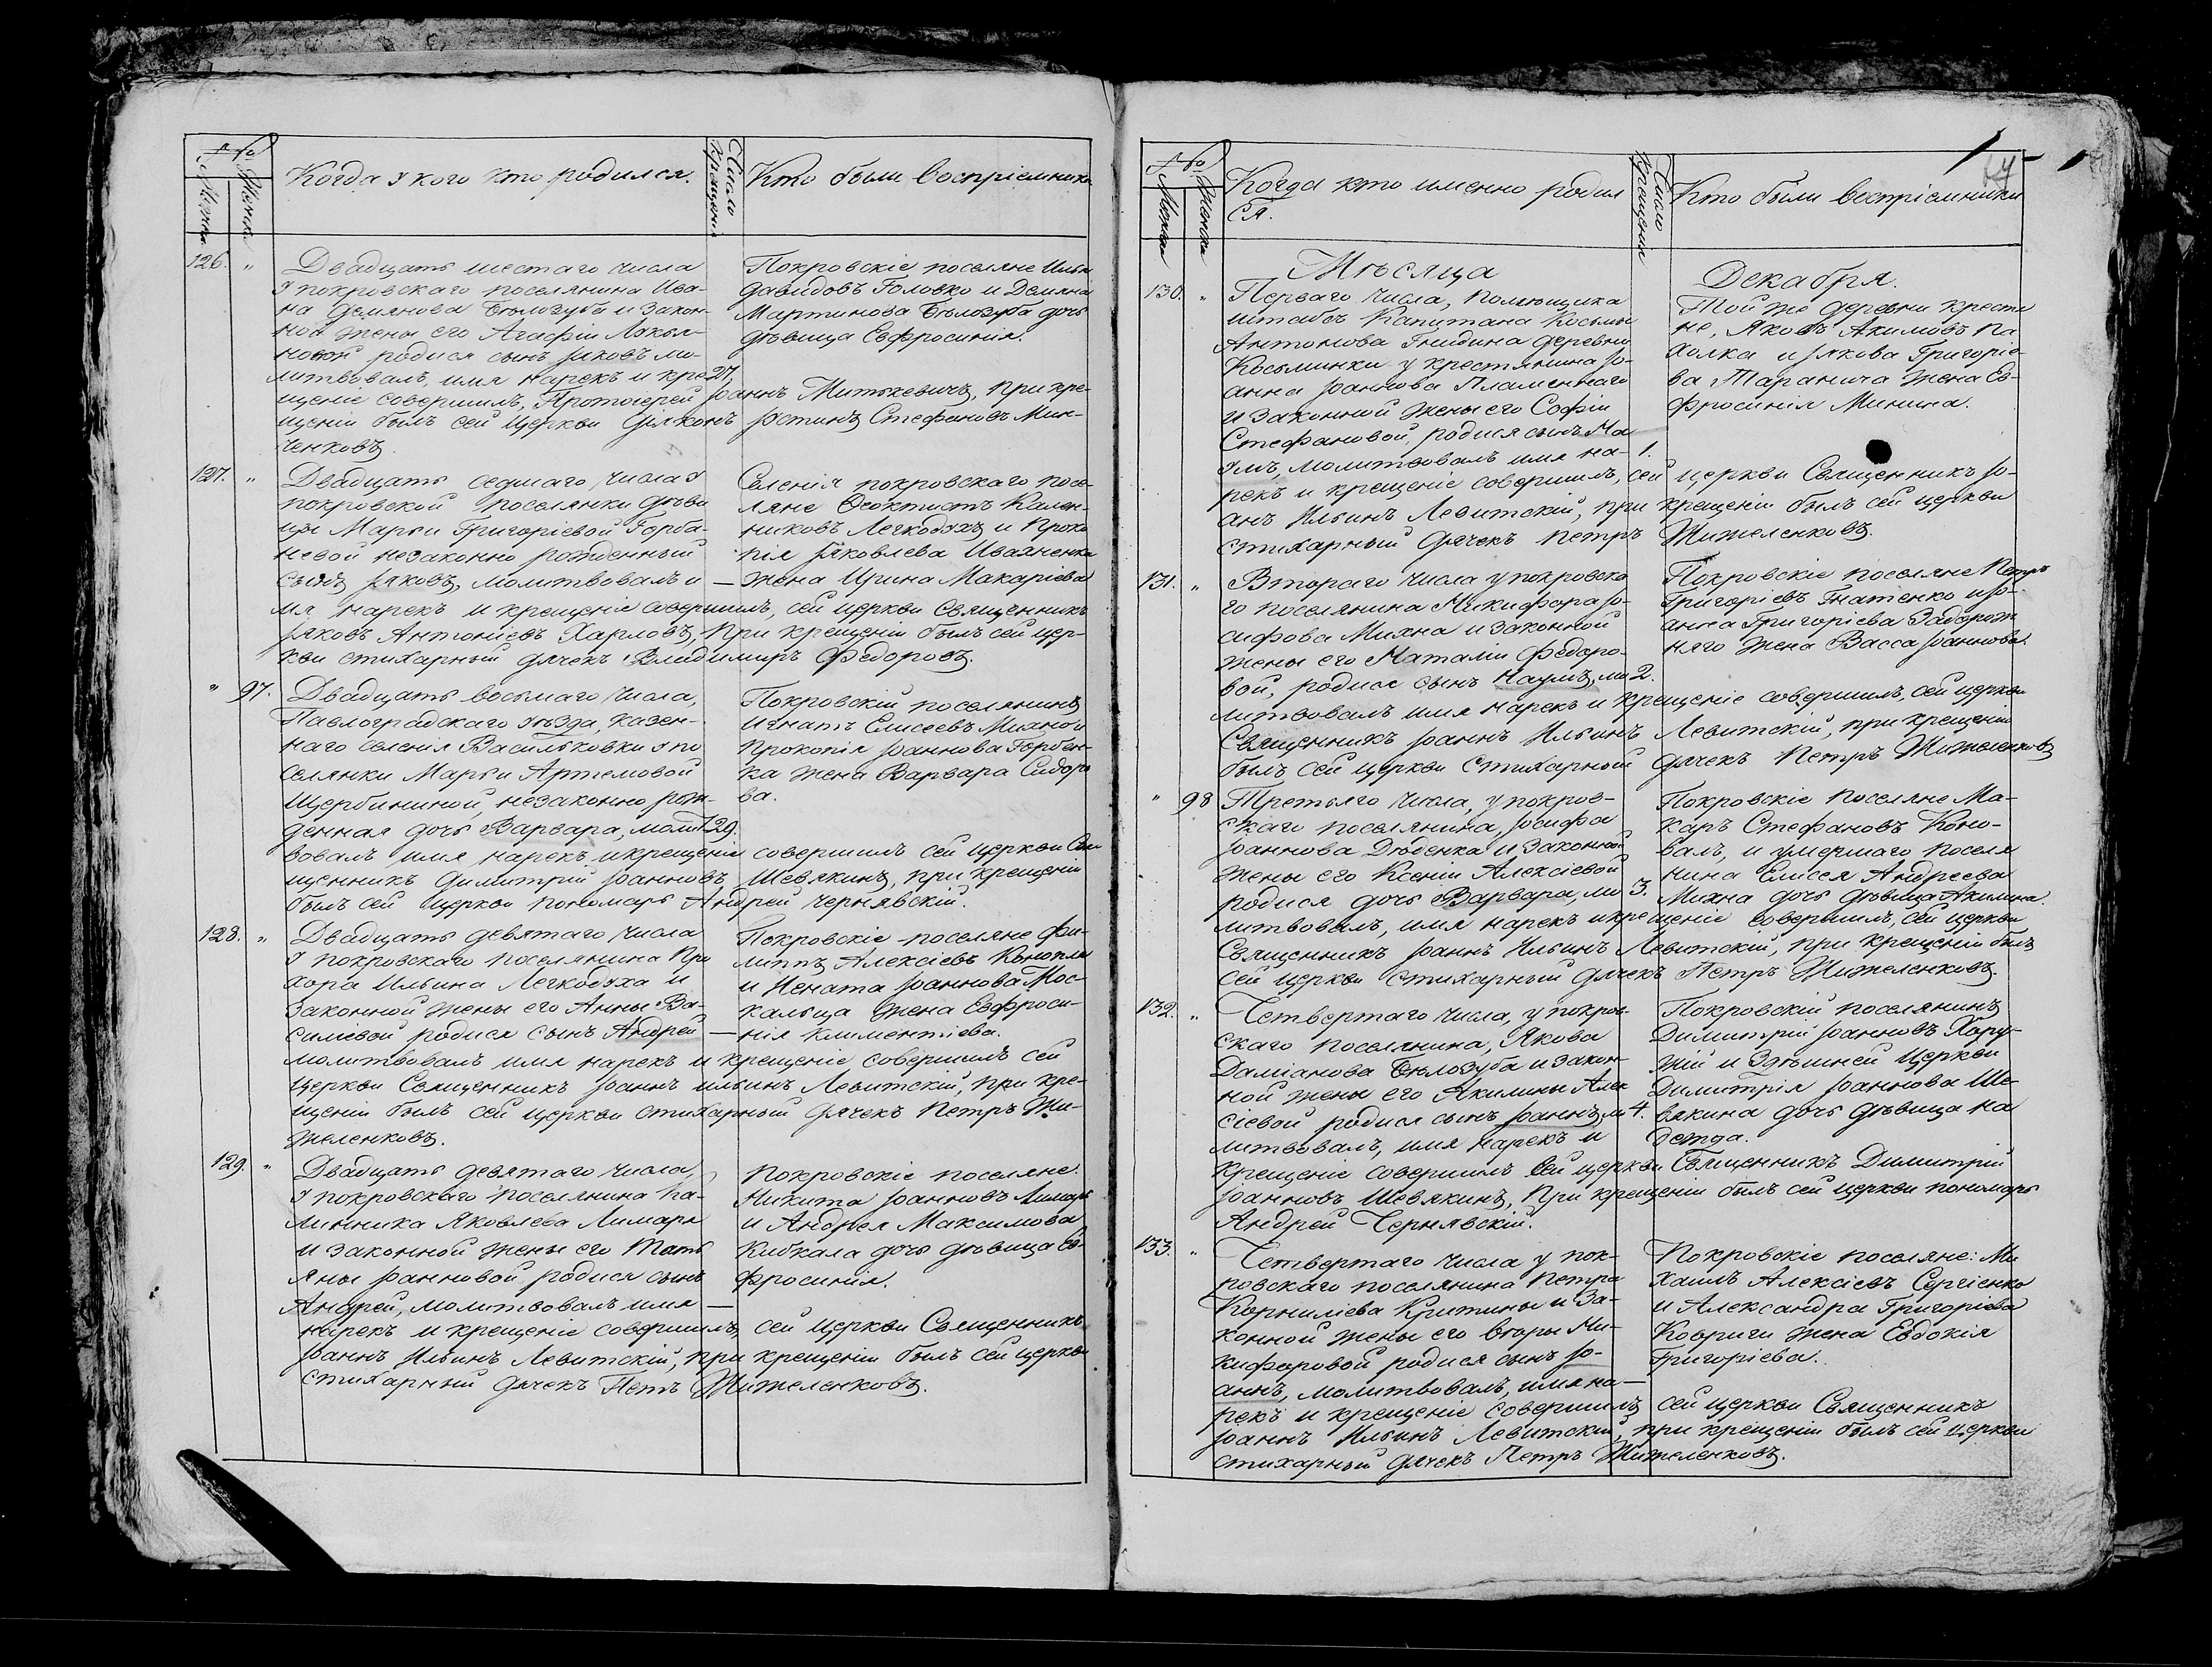 №
Мужск.
Женска
Когда у кого кто родился.
Число крещения
Кто были воспріемники
126. „
Двадцать шестаго числа
у покровскаго поселянина Ива-
на Демянова Белозуба и закон-
ной жены его Агафіи
родися сынъ Іаковъ мо-
литвовалъ, имя нарекъ и кре- 27.
щеніе совершилъ, Протоіерей Іоаннъ Митькевичъ, при кре-
щеніи былъ сей церкви Діяконъ Іустинъ Стефановъ Мин-
ченковъ.
Покровскіе поселяне Илья
Давидовъ Головко и Демяна
Мартинова Бѣлозуба дочь
дѣвица Евфросинія.
127. „
Двадцать седмаго числа у
покровской поселянки дѣви
цы Марьи Григоріевой Горба-
невой незаконно рожденный
сынъ Іаковъ, молитвовалъ и —
мя нарекъ и крещеніе совершилъ, сей церкви Священникъ
Іаковъ Антоніевъ Харловъ, при крещеніи былъ сей цер-
кви стихарный дячекъ Владимиръ Федоровъ.
Селенія покровскаго посе-
ляне Феоктистъ Калин-
никовъ Легкодухъ и Проко
пія Іаковлева Ивахненка
жена Ирина Макаріева
„ 97.
Двадцать восьмаго числа,
Павлоградскаго уѣзда, казен-
наго селенія Васильковки у по
селянки Марьи Артемовой
Щербининой, незаконно рож-
денная дочь Варвара, молит 29.
вовалъ имя нарекъ и крещеніе совершилъ сей церкви Свя
щенникъ Димитрій Іоанновъ Шевякинъ, при крещеніи
былъ сей церкви пономарь Андрей Чернявскій.
Покровскій поселянинъ
Игнатъ Елисеевъ Михно и
Прокопія Іоаннова Горбен-
ка жена Варвара Сидоро
ва.
128. „
Двадцать девятаго числа
у покровскаго поселянина Про
хора Ильина Легкодуха и
законной жены его Анны Ва-
силіевой родися сынъ Андрей —
молитвовалъ имя нарекъ и крещеніе совершилъ сей
церкви Священникъ Іоаннъ Ильинъ Левитскій, при кре-
щеніи былъ сей церкви стихарный дячекъ Петръ Жи-
желенковъ.
Покровскіе поселяне Фи-
липпъ Алексіевъ Конопля
и Игната Іоаннова Мос-
кальца жена Евфроси-
нія Климентіева.
129. „
Двадцать девятаго числа,
у покровскаго поселянина Ка-
линника Яковлева Лимаря
и законной жены его Тать
яны Іоанновой родися сынъ
Андрей, молитвовалъ имя —
нарекъ и крещеніе совершилъ, сей церкви Священникъ
Іоаннъ Ильинъ Левитскій, при крещеніи былъ сей церкви
стихарный дячекъ Петъ Жижеленковъ.
Покровскіе поселяне
Никита Іоанновъ Лимарь
и Андрея Максимова
Кибкала дочь дѣвица Ев-
фросинія.
№
Мужск
Женска
Когда кто именно родил
ся.
Число крещенія
Кто были воспріемники
Мѣсяца Декабря.
130. „
Перваго числа, помѣщика
штабсъ Капитана Косьмы
Антонова Гнидина деревни
Косьминки у крестьянина Іо-
анна Іоаннова Пламеннаго
и законной жены его Софіи
Стефановой, родися сынъ На
умъ, молитвовалъ имя на- 1.
рекъ и крещеніе совершилъ, сей церкви Священникъ Іо-
анъ Ильинъ Левитскій, при крещеніи былъ сей церкви
стихарный дячекъ Петръ Жижеленковъ.
Той же деревни крестя
не, Яковъ Акимовъ Па
холка и Іякова Григоріе-
ва Таранича жена Ев-
фросинія Минина.
131. „
Втораго числа у покровска
го поселянина Никифора Іо-
сифова Михна и законной
жены его Наталіи Федоро-
вой, родися сынъ Наумъ, мо 2.
литвовалъ имя нарекъ и крещеніе совершилъ, сей церкви
Священникъ Іоаннъ Ильинъ Левитскій, при крещеніи
былъ сей церкви стихарный дячекъ Петръ Жижеленковъ
Покровскіе поселяне Петръ
Григоріевъ Гнатенко и Іо-
анна Григоріева Задорож
няго жена Васса Іоаннова.
„ 98
Третьяго числа, у покров-
скаго поселянина, Іосифа
Іоаннова Дѣденка и законной
жены его Ксеніи Алексіевой
родися дочь Варвара, мо 3.
литвовалъ, имя нарекъ и крещеніе совершилъ, сей церкви
Священникъ Іоаннъ Ильинъ Левитскій, при крещеніи былъ
сей церкви стихарный дячекъ Петръ Жижеленковъ.
Покровскіе поселяне Ма-
каръ Стефановъ Коно-
валъ, и умершаго поселя
нина Елисея Андреева
Михна дочь дѣвица Акилина.
132. „
Четвертаго числа, у покров-
скаго поселянина, Якова
Даміанова Бѣлозуба и закон-
ной жены его Акилины Алек
сіевой родися сынъ Іоаннъ, мо 4.
литвовалъ, имя нарекъ и
крещеніе совершилъ сей церкви Священникъ Димитрій
Іоанновъ Шевякинъ, при крещеніи былъ сей церкви пономарь
Андрей Чернявскій.
Покровскій поселянинъ
Димитрій Іоанновъ Хору-
жій и здѣшней церкви
Димитрія Іоаннова Ше-
вякина дочь дѣвица На
дежда.
133. „
Четвертаго числа у пок-
ровскаго поселянина Петра
Корниліева Критины и за-
конной жены его Вѣры Ни-
кифоровой родися сынъ Іо-
аннъ, молитвовалъ, имя на —
рекъ и крещеніе совершилъ сей церкви Священникъ
Іоаннъ Ильинъ Левитскій, при крещеніи былъ сей церкви
стихарный дячекъ Петръ Жижеленковъ.
Покровскіе поселяне: Ми
хаилъ Алексіевъ Сергіенко
и Александра Григоріева
Ковриги жена Евдокія
Григоріева.